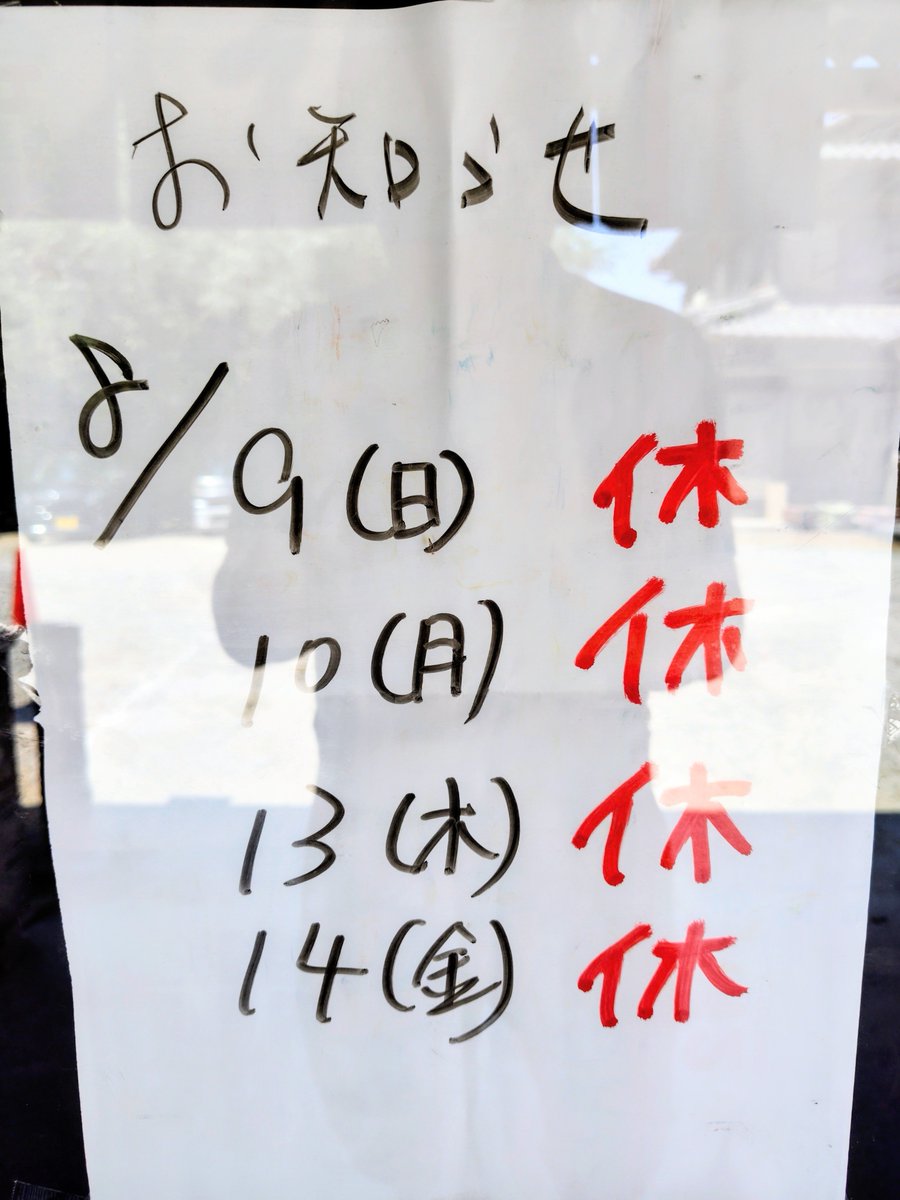 お知らせ
8/9(日) 休
10(月) 休
13(木) 休
14(金) 休